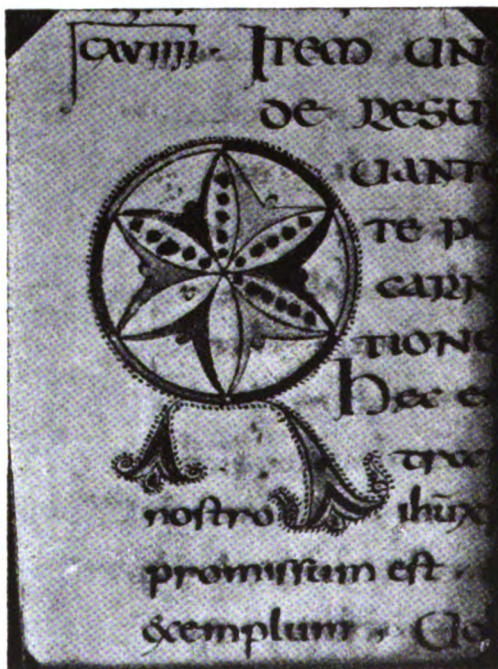 CXVIIII. ITEM UN
DE RESU
QUANTO
TE PO
CARN
TIONE
hec e
nostro ihūx
promissum est
exemplum,